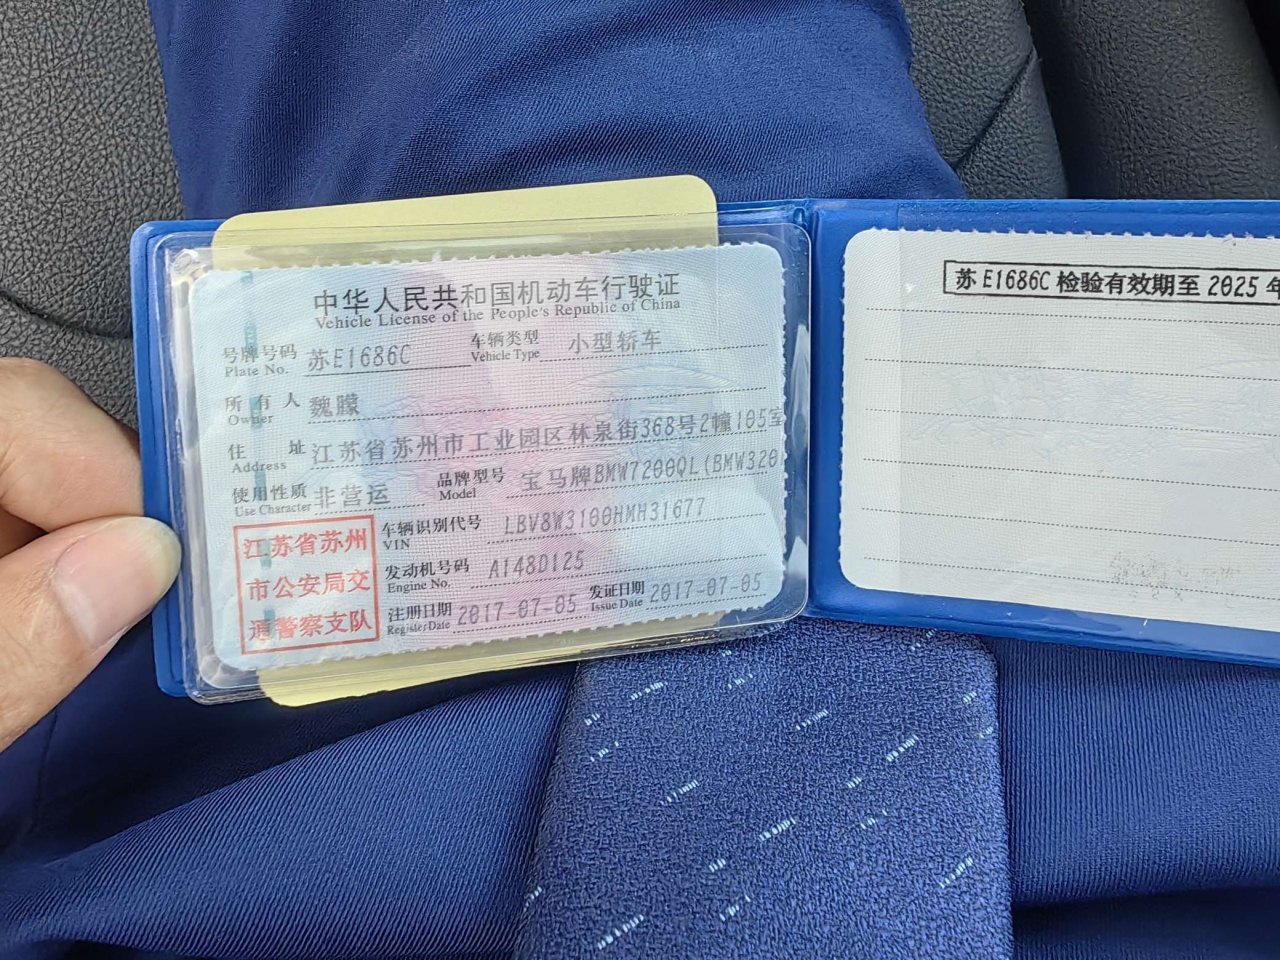 中华人民共和国机动车行驶证
Vehicle License of the People's Republic of China
号牌号码 苏E1686C 车辆类型 小型轿车
Plate No. Vehicle Type
所有人 魏朦
Owner
住址 江苏省苏州市工业园区林泉街368号2幢105室
Address
使用性质 非营运 品牌型号 宝马牌BMW7200QL(BMW320
Use Character Model
车辆识别代号 LBV8W3100HMH31677
VIN
发动机号码 A148D125
Engine No.
注册日期 2017-07-05 发证日期 2017-07-05
Register Date Issue Date
江苏省苏州
市公安局交
通警察支队
苏E1686C 检验有效期至 2025 年